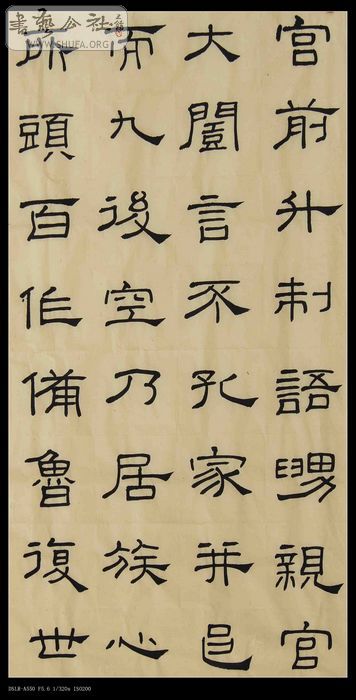 書藝公社
WWW.SHUFA.ORG
宮前升制語舅親官
大闓言不孔家并邑
而九後空乃居族心
所頭百作備魯復世
DSLR-A550 F5.6 1/320s ISO200